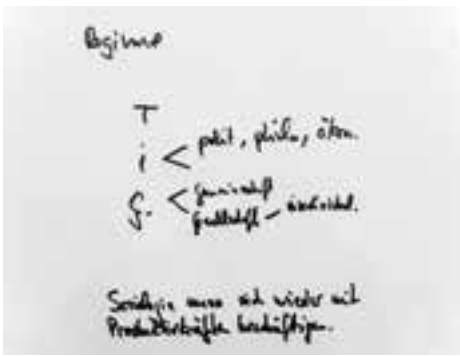 Regime
T
i < polit, philos, ökon.
G. < Gemeinschaft
Gesellschaft –
Soziologie muss sich wieder mit
Produktivkräften beschäftigen.